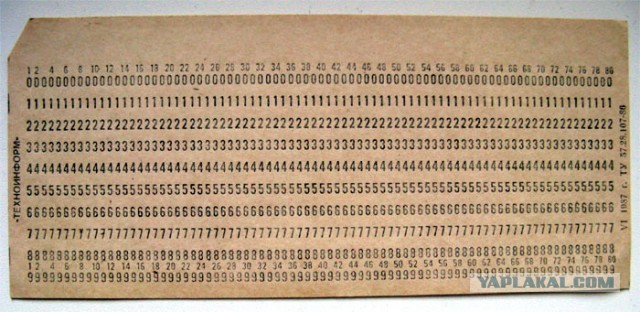 1 2 4 6 8 10 12 14 16 18 20 22 24 26 28 30 32 34 36 38 40 42 44 46 48 50 52 54 56 58 60 62 64 66 68 70 72 74 76 78 80
00000000000000000000000000000000000000000000000000000000000000000000000000000000
11111111111111111111111111111111111111111111111111111111111111111111111111111111
22222222222222222222222222222222222222222222222222222222222222222222222222222222
33333333333333333333333333333333333333333333333333333333333333333333333333333333
44444444444444444444444444444444444444444444444444444444444444444444444444444444
55555555555555555555555555555555555555555555555555555555555555555555555555555555
66666666666666666666666666666666666666666666666666666666666666666666666666666666
77777777777777777777777777777777777777777777777777777777777777777777777777777777
88888888888888888888888888888888888888888888888888888888888888888888888888888888
1 2 4 6 8 10 12 14 16 18 20 22 24 26 28 30 32 34 36 38 40 42 44 46 48 50 52 54 56 58 60 62 64 66 68 70 72 74 76 78 80
99999999999999999999999999999999999999999999999999999999999999999999999999999999
«ТЕХНОИНФОРМ»
VI 1987 г. ТУ 57.28.107-86
YAPLAKAL.COM